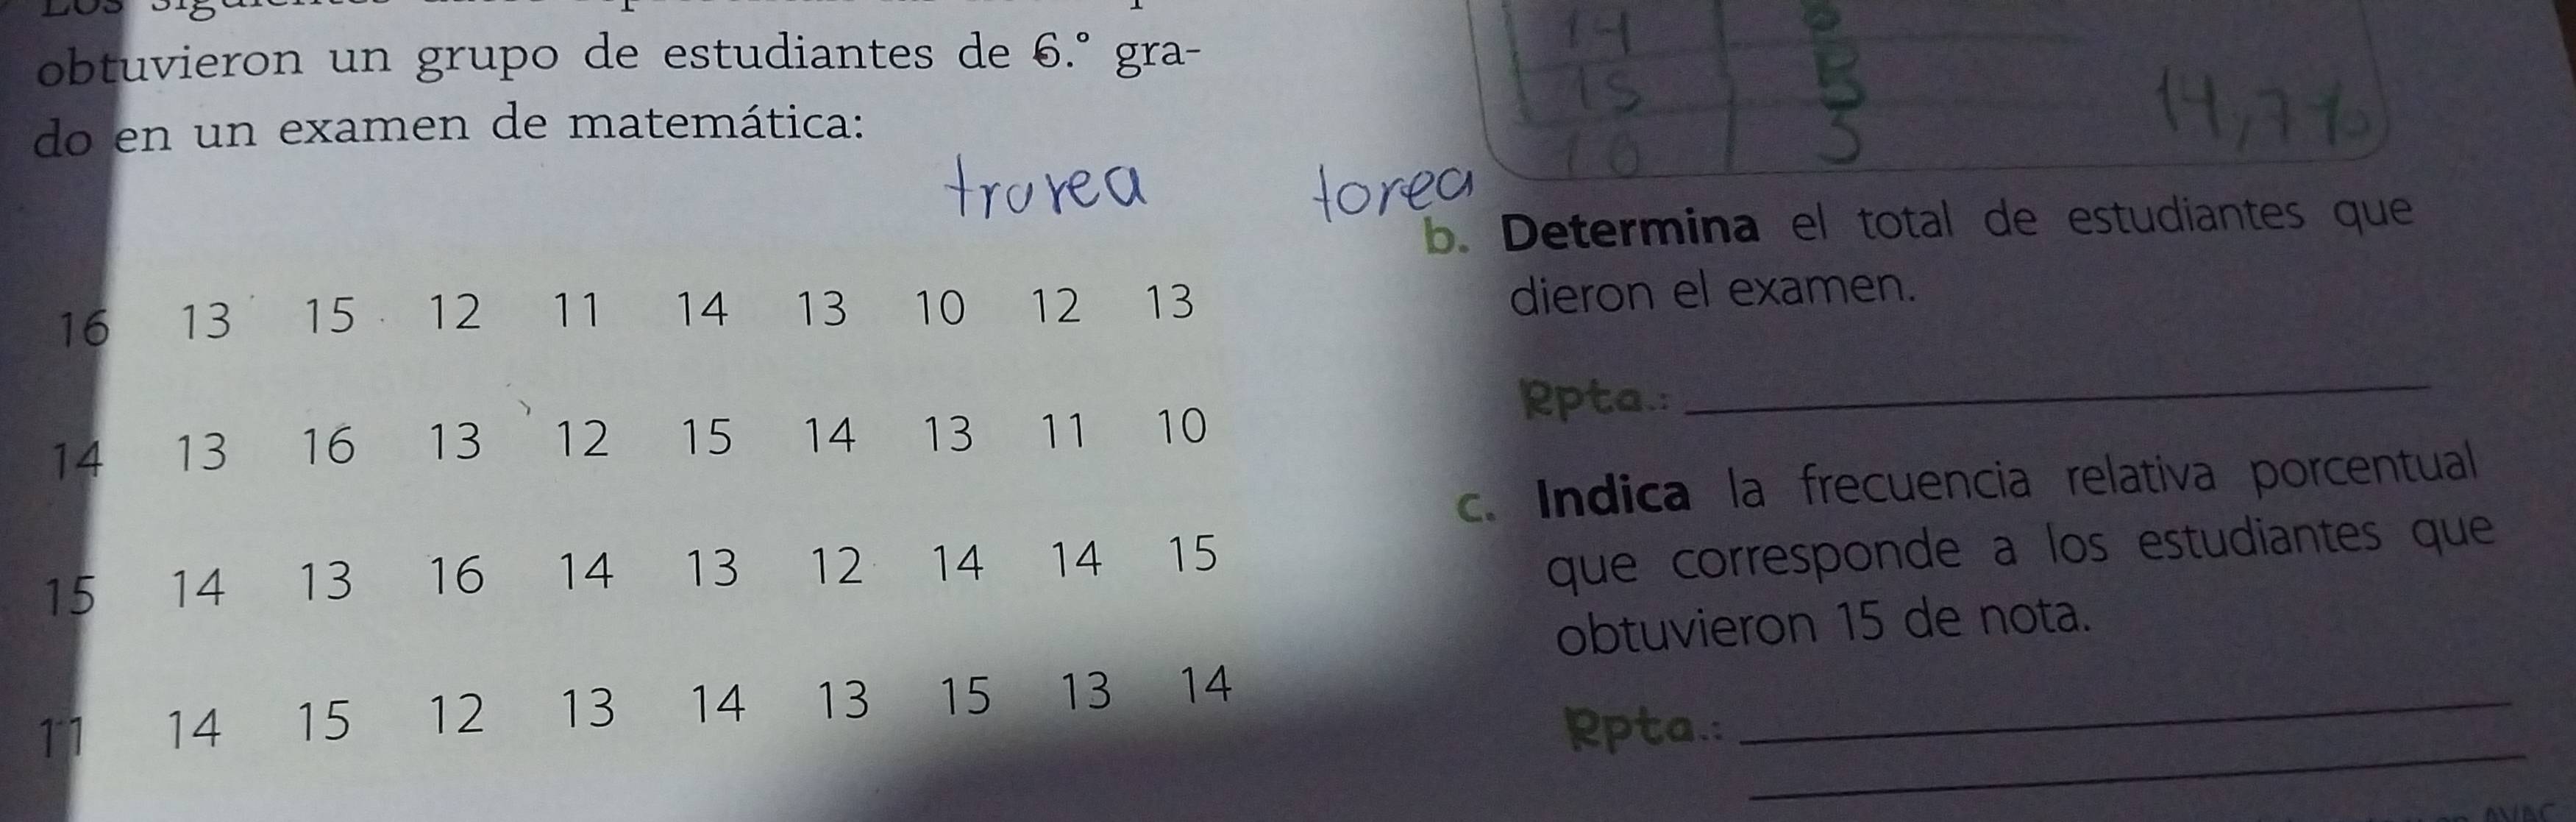 obtuvieron un grupo de estudiantes de 6.° gra-
do en un examen de matemática:
trarea
16 13 15 12 11 14 13 10 12 13
14 13 16 13 12 15 14 13 11 10
15 14 13 16 14 13 12 14 14 15
11 14 15 12 13 14 13 15 13 14
14
15
14,7%
torea
b. Determina el total de estudiantes que
dieron el examen.
Rpta.:
c. Indica la frecuencia relativa porcentual
que corresponde a los estudiantes que
obtuvieron 15 de nota.
Rpta.: